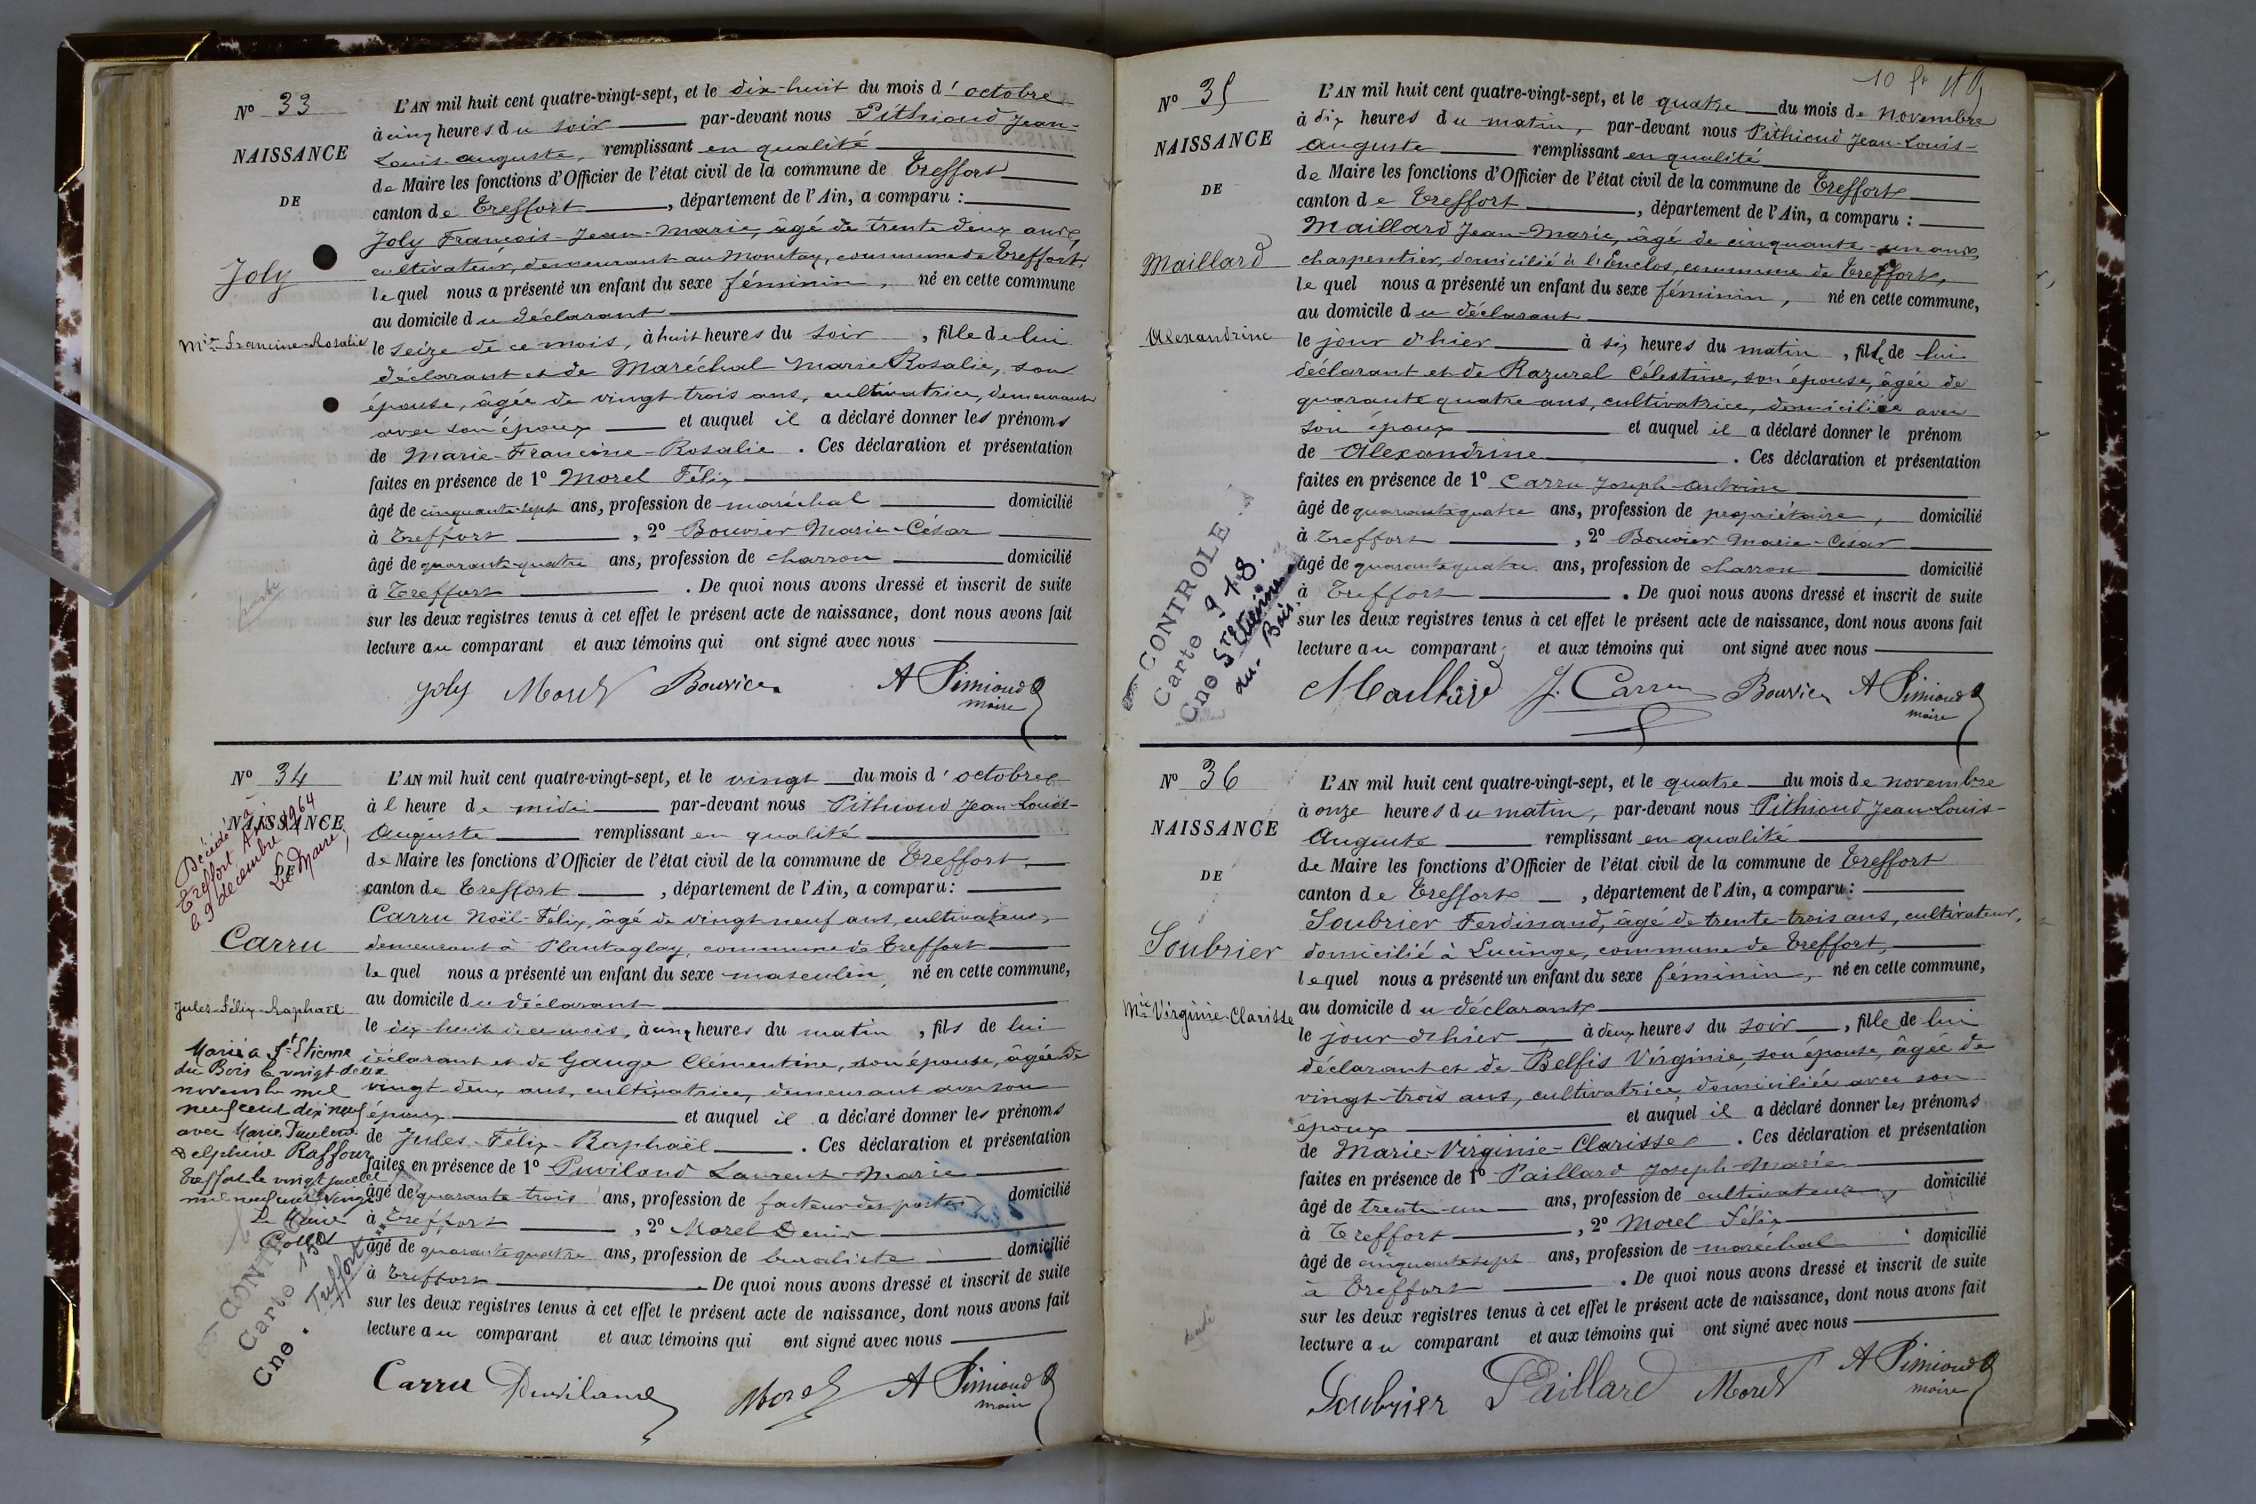 N° 33
NAISSANCE
DE
Joly
Mie Francine-Rosalie
L'AN mil huit cent quatre-vingt-sept, et le dix-huit du mois d'octobre
à cinq heures du soir par-devant nous Pithioud Jean-
Louis-Auguste, remplissant en qualité
de Maire les fonctions d'Officier de l'état civil de la commune de Treffort
canton de Treffort, département de l'Ain, a comparu :
Joly François-Jean-Marie, âgé de trente deux ans,
cultivateur, demeurant au Monetay, commune de Treffort,
lequel nous a présenté un enfant du sexe féminin, né en cette commune
au domicile du déclarant
le seize de ce mois, à huit heures du soir, fille de lui
déclarant et de Maréchal Marie Rosalie, son
épouse, âgée de vingt-trois ans, cultivatrice, demeurant
avec son époux et auquel il a déclaré donner les prénoms
de Marie-Francine-Rosalie. Ces déclaration et présentation
faites en présence de 1° Morel Félix
âgé de cinquante-sept ans, profession de maréchal domicilié
à Treffort, 2° Bouvier Marie-César
âgé de quarante-quatre ans, profession de charron domicilié
à Treffort. De quoi nous avons dressé et inscrit de suite
sur les deux registres tenus à cet effet le présent acte de naissance, dont nous avons fait
lecture au comparant et aux témoins qui ont signé avec nous
Joly Morel Bouvier A Pithioud
maire
N° 34
NAISSANCE
DE
Décédé à
Treffort Ain
le 9 décembre 1964
Le Maire,
Carru
Jules-Félix-Raphaël
Marié à St Etienne
du Bois le vingt deux
novembre mil
neuf cent dix neuf
avec Marie
Delphine Raffour
Treffort le vingt juillet
mil neuf cent vingt
Le Maire
CONTROLE
Carte
Cne. Treffort
L'AN mil huit cent quatre-vingt-sept, et le vingt du mois d'octobre
à l heure de midi par-devant nous Pithioud Jean-Louis-
Auguste remplissant en qualité
de Maire les fonctions d'Officier de l'état civil de la commune de Treffort,
canton de Treffort, département de l'Ain, a comparu :
Carru Noël-Félix, âgé de vingt-neuf ans, cultivateur,
demeurant à Plantaglay, commune de Treffort
lequel nous a présenté un enfant du sexe masculin, né en cette commune,
au domicile du déclarant
le dix-huit de ce mois, à cinq heures du matin, fils de lui
déclarant et de Gauge Clémentine, son épouse, âgée de
vingt-deux ans, cultivatrice, demeurant avec son
époux et auquel il a déclaré donner les prénoms
de Jules-Félix-Raphaël. Ces déclaration et présentation
faites en présence de 1° Puviland Laurent-Marie
âgé de quarante trois ans, profession de facteur des postes domicilié
à Treffort, 2° Morel Denis
âgé de quarante quatre ans, profession de buraliste domicilié
à Treffort. De quoi nous avons dressé et inscrit de suite
sur les deux registres tenus à cet effet le présent acte de naissance, dont nous avons fait
lecture au comparant et aux témoins qui ont signé avec nous
Carru Puviland Morel A Pithioud
maire
N° 35
NAISSANCE
DE
Maillard
Alexandrine
CONTROLE
Carte 918.
Cne St Etienne
du Bois.
L'AN mil huit cent quatre-vingt-sept, et le quatre du mois de novembre
à dix heures du matin, par-devant nous Pithioud Jean-Louis-
Auguste remplissant en qualité
de Maire les fonctions d'Officier de l'état civil de la commune de Treffort
canton de Treffort, département de l'Ain, a comparu :
Maillard Jean-Marie, âgé de cinquante-un ans,
charpentier, domicilié à l'Enclos, commune de Treffort,
lequel nous a présenté un enfant du sexe féminin, né en cette commune,
au domicile du déclarant
le jour d'hier à six heures du matin, fille de lui
déclarant et de Razurel Célestine, son épouse, âgée de
quarante quatre ans, cultivatrice, domiciliée avec
son époux et auquel il a déclaré donner le prénom
de Alexandrine. Ces déclaration et présentation
faites en présence de 1° Carru Joseph-Antoine
âgé de quarante quatre ans, profession de propriétaire, domicilié
à Treffort, 2° Bouvier Marie-César
âgé de quarante quatre ans, profession de charron domicilié
à Treffort. De quoi nous avons dressé et inscrit de suite
sur les deux registres tenus à cet effet le présent acte de naissance, dont nous avons fait
lecture au comparant et aux témoins qui ont signé avec nous
Maillard J. Carru Bouvier A Pithioud
maire
N° 36
NAISSANCE
DE
Soubrier
Mie Virginie-Clarisse
L'AN mil huit cent quatre-vingt-sept, et le quatre du mois de novembre
à onze heures du matin, par-devant nous Pithioud Jean-Louis-
Auguste remplissant en qualité
de Maire les fonctions d'Officier de l'état civil de la commune de Treffort
canton de Treffort, département de l'Ain, a comparu :
Soubrier Ferdinand, âgé de trente-trois ans, cultivateur,
domicilié à Lucinge, commune de Treffort,
lequel nous a présenté un enfant du sexe féminin, né en cette commune,
au domicile du déclarant
le jour d'hier, à deux heures du soir, fille de lui
déclarant et de Belfis Virginie, son épouse, âgée de
vingt-trois ans, cultivatrice, domiciliée avec son
époux et auquel il a déclaré donner les prénoms
de Marie-Virginie-Clarisse. Ces déclaration et présentation
faites en présence de 1° Paillard Joseph-Marie
âgé de trente-un ans, profession de cultivateur, domicilié
à Treffort, 2° Morel Félix
âgé de cinquante sept ans, profession de maréchal domicilié
à Treffort. De quoi nous avons dressé et inscrit de suite
sur les deux registres tenus à cet effet le présent acte de naissance, dont nous avons fait
lecture au comparant et aux témoins qui ont signé avec nous
Soubrier Paillard Morel A Pithioud
maire